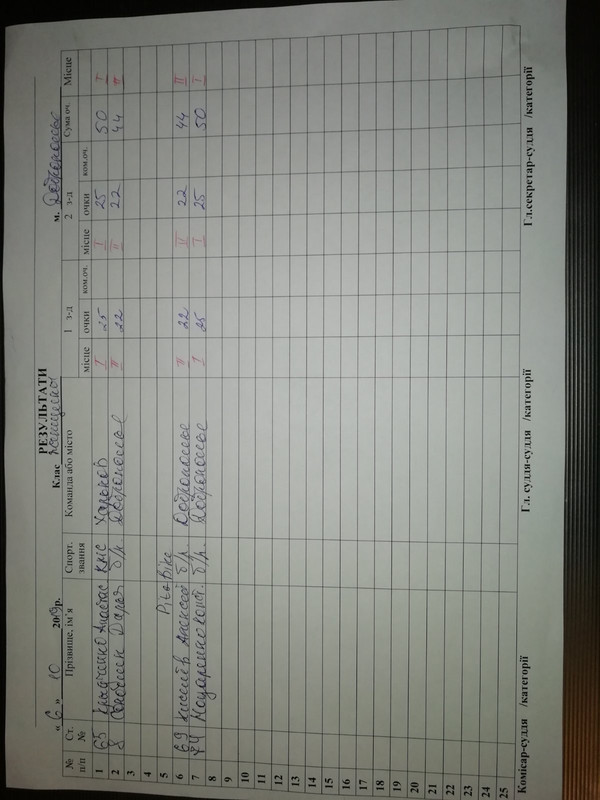 РЕЗУЛЬТАТИ
« 6 » 10 2019р. Клас м. Добропольє
№ п/п Ст. № Прізвище, ім'я Спорт. звання Команда або місто 1 з-д 2 з-д Сума оч. Місце
місце очки ком.оч. місце очки ком.оч.
1 65 КМС Харьков I 25 I 25 50 I
2 8 Дарья б/р. Доброполье II 22 II 22 44 II
3
4
5 Pit Bike
6 69 Киселёв Алексей б/р. Доброполье II 22 II 22 44 II
7 44 б/р. Доброполье I 25 I 25 50 I
8
9
10
11
12
13
14
15
16
17
18
19
20
21
22
23
24
25
Комісар-суддя /категорії Гл. суддя-суддя /категорії Гл.секретар-суддя /категорії